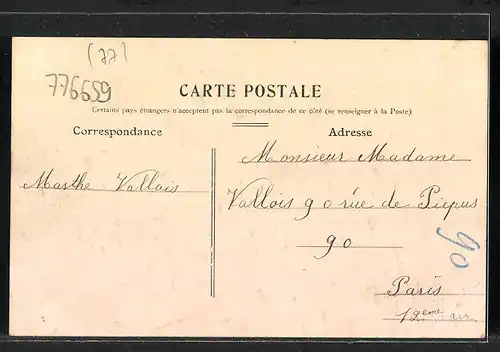 (77)
776659
CARTE POSTALE
Certains pays étrangers n'acceptent pas la correspondance de ce côté (se renseigner à la Poste)
Correspondance
Adresse
Monsieur Madame
Marthe Vallois
Vallois 90 rue de Picpus
90
90
Paris
12eme arr